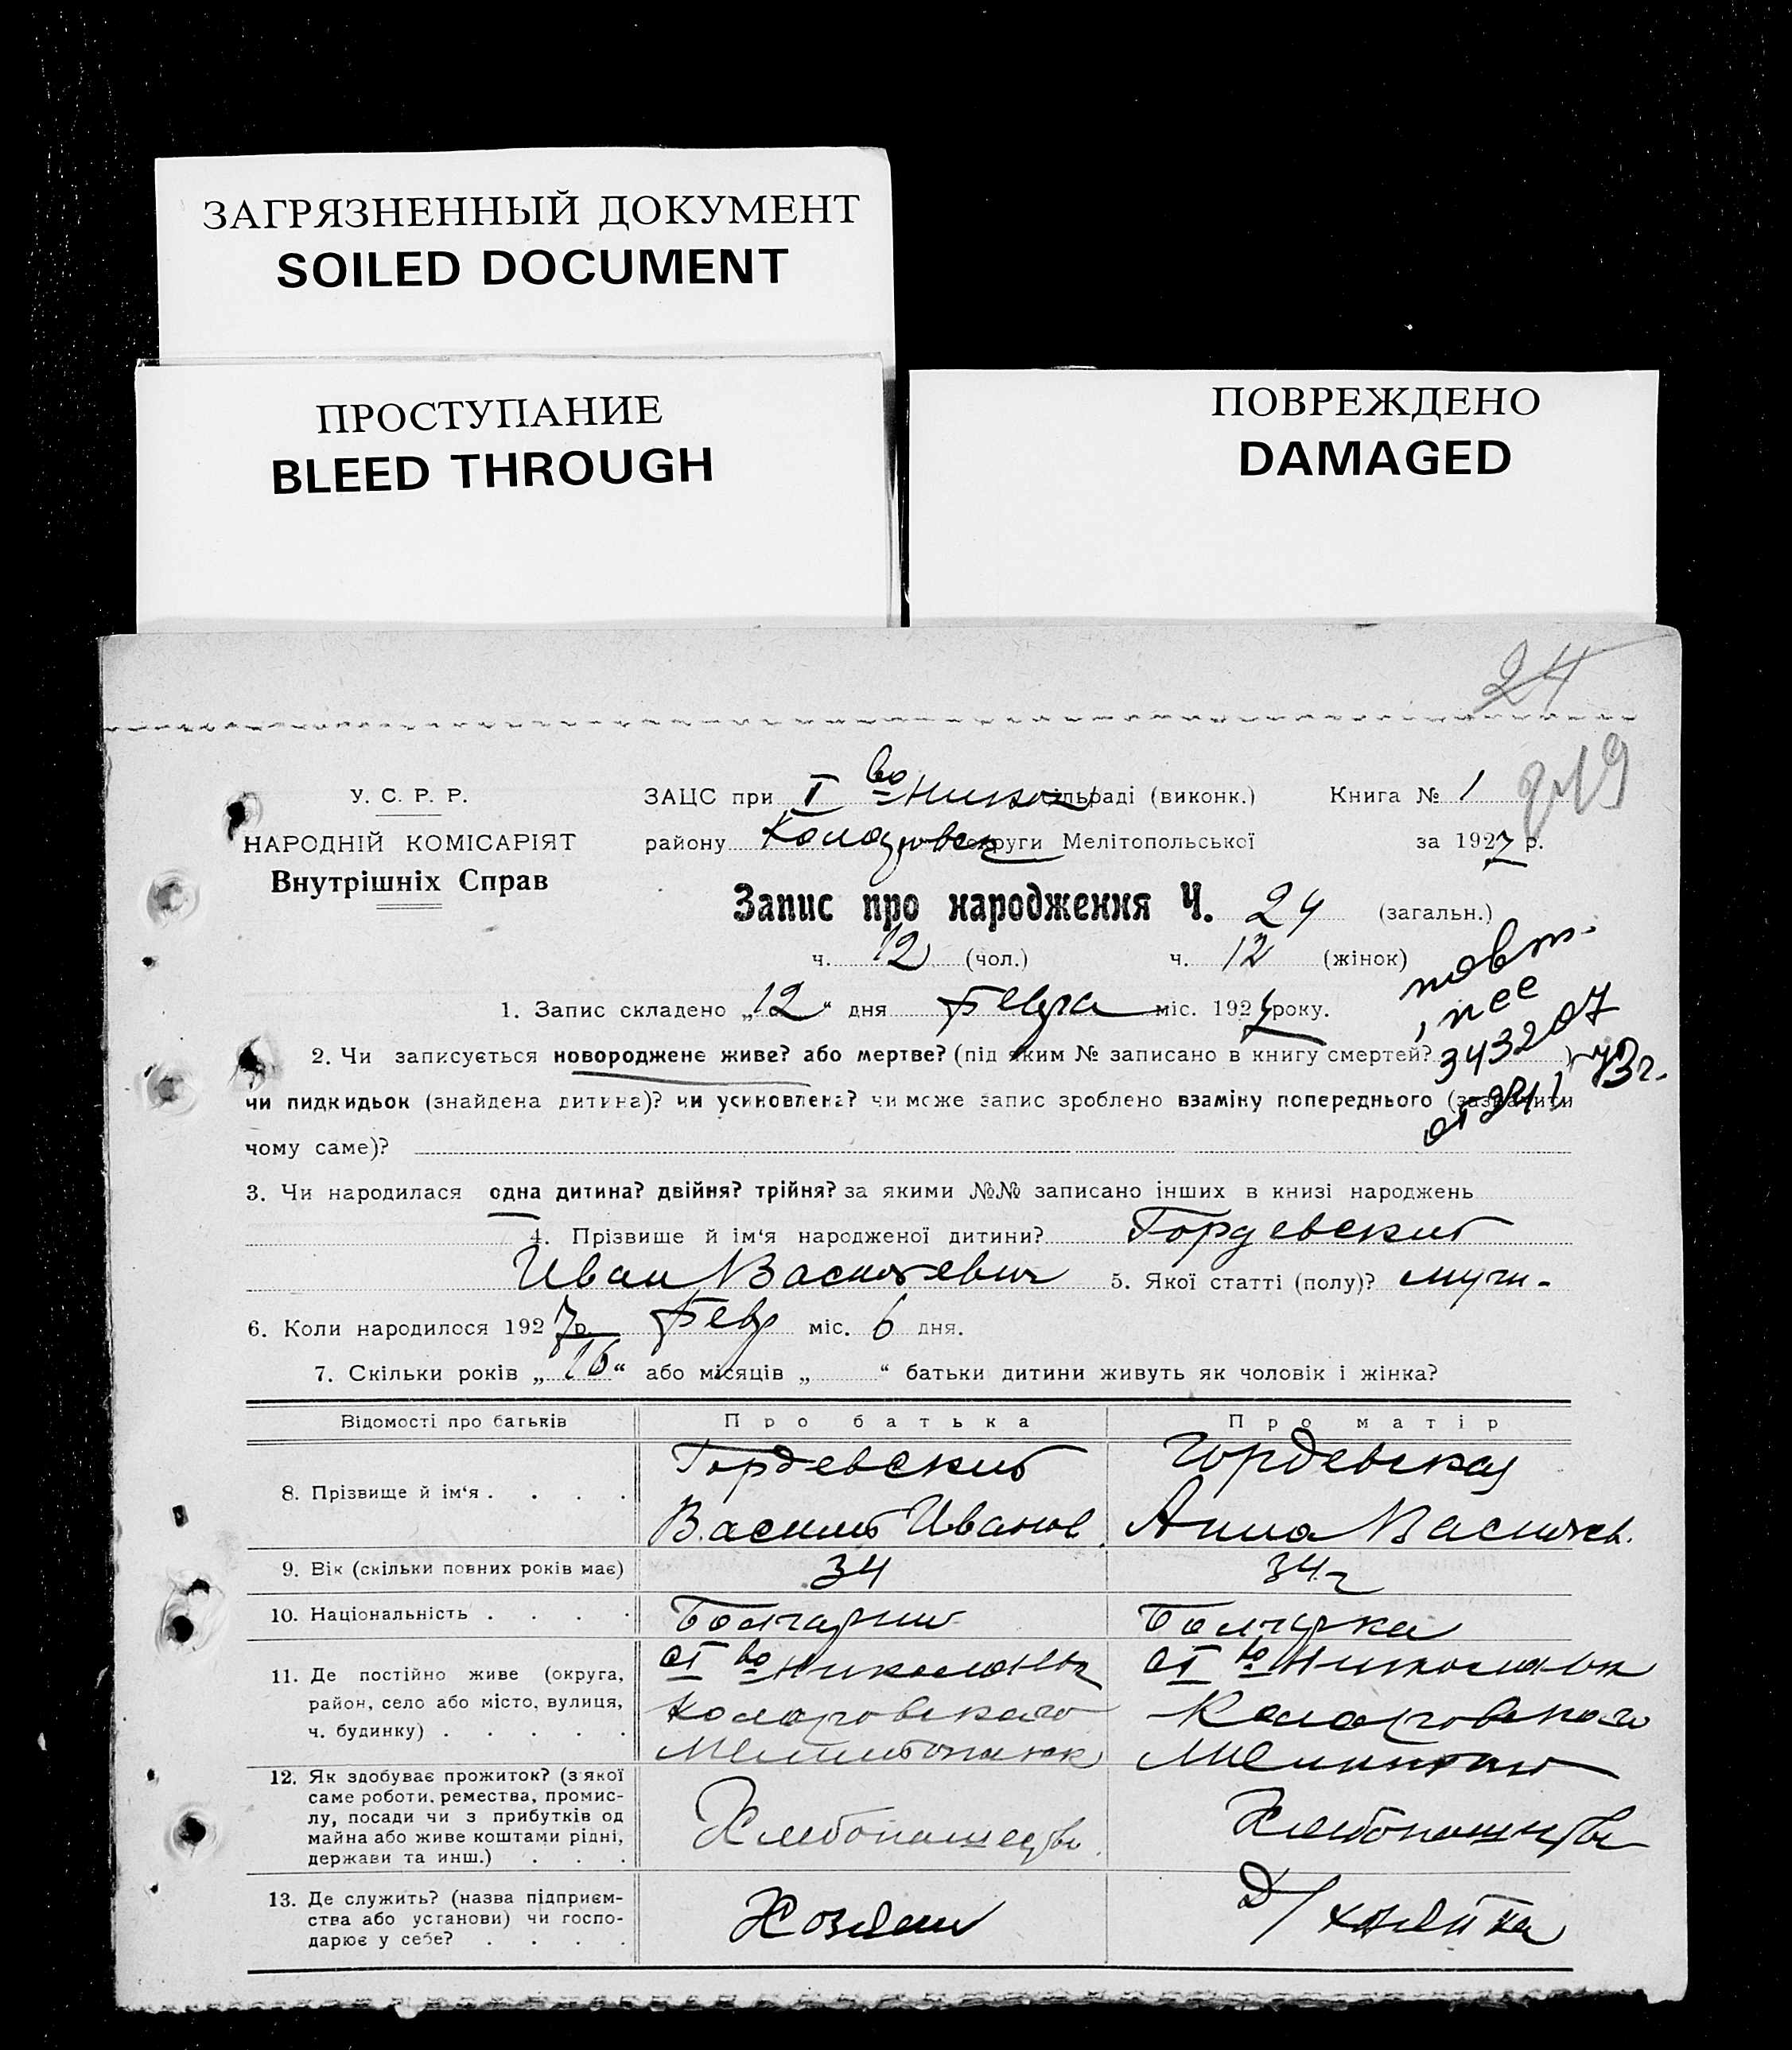 ЗАГРЯЗНЕННЫЙ ДОКУМЕНТ
SOILED DOCUMENT
ПРОСТУПАНИЕ
BLEED THROUGH
ПОВРЕЖДЕНО
DAMAGED
24
219
У. С. Р. Р.
НАРОДНІЙ КОМІСАРІЯТ
Внутрішніх Справ
ЗАЦС при I во Никол сільраді (виконк.) Книга № 1
району Коларовск округи Мелітопольської за 1927 р.
Запис про народження Ч. 24 (загальн.)
ч. 12 (чол.) ч. 12 (жінок)
повт.
343207
1. Запис складено „12“ дня Февра міс. 1927 року.
2. Чи записується новороджене живе? або мертве? (під яким № записано в книгу смертей? )
чи пидкидьок (знайдена дитина)? чи усиновлена? чи може запис зроблено взаміну попереднього (зазначити
чому саме)?
3. Чи народилася одна дитина? двійня? трійня? за якими №№ записано інших в книзі народжень
4. Прізвище й ім‘я народженої дитини? Гордевский
Иван Васильевич 5. Якої статті (полу)? муж.
6. Коли народилося 1927 р. Февр міс. 6 дня.
7. Скільки років „16“ або місяців „ “ батьки дитини живуть як чоловік і жінка?
Відомості про батьків Про батька Про матір
8. Прізвище й ім‘я . . . .
Гордевский
Василий Иванов.
Гордевская
Анна Васильев.
9. Вік (скільки повних років має) 34 34 г
10. Національність . . . . Болгарин Болгарка
11. Де постійно живе (округа,
район, село або місто, вулиця,
ч. будинку) . . . . .
с I во Николаевк
Коларовского
Мелитопольск
с I во Николаевк
Коларовского
Мелитоп
12. Як здобуває прожиток? (з якої
саме роботи, ремества, промис-
лу, посади чи з прибутків од
майна або живе коштами рідні,
держави та инш.) . . .
Хлебопашество
Хлебопашество
13. Де служить? (назва підприєм-
ства або установи) чи госпо-
дарює у себе? . . . .
Хозяин
Д/хозяйка